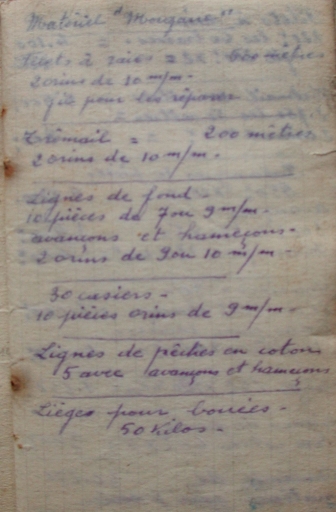 Matériel "Morgane"
filets à raies = 600 mètres
2 orins de 10 m/m.
que pour les réparer
Trémail = 200 mètres
2 orins de 10 m/m.
Lignes de fond.
10 pièces de 7 ou 9 m/m.
avançons et hameçons.
2 orins de 9 ou 10 m/m.
30 casiers.
10 pièces orins de 9 m/m.
Lignes de pêches en coton
5 avec avançons et hameçons
Lièges pour bouées.
50 Kilos.